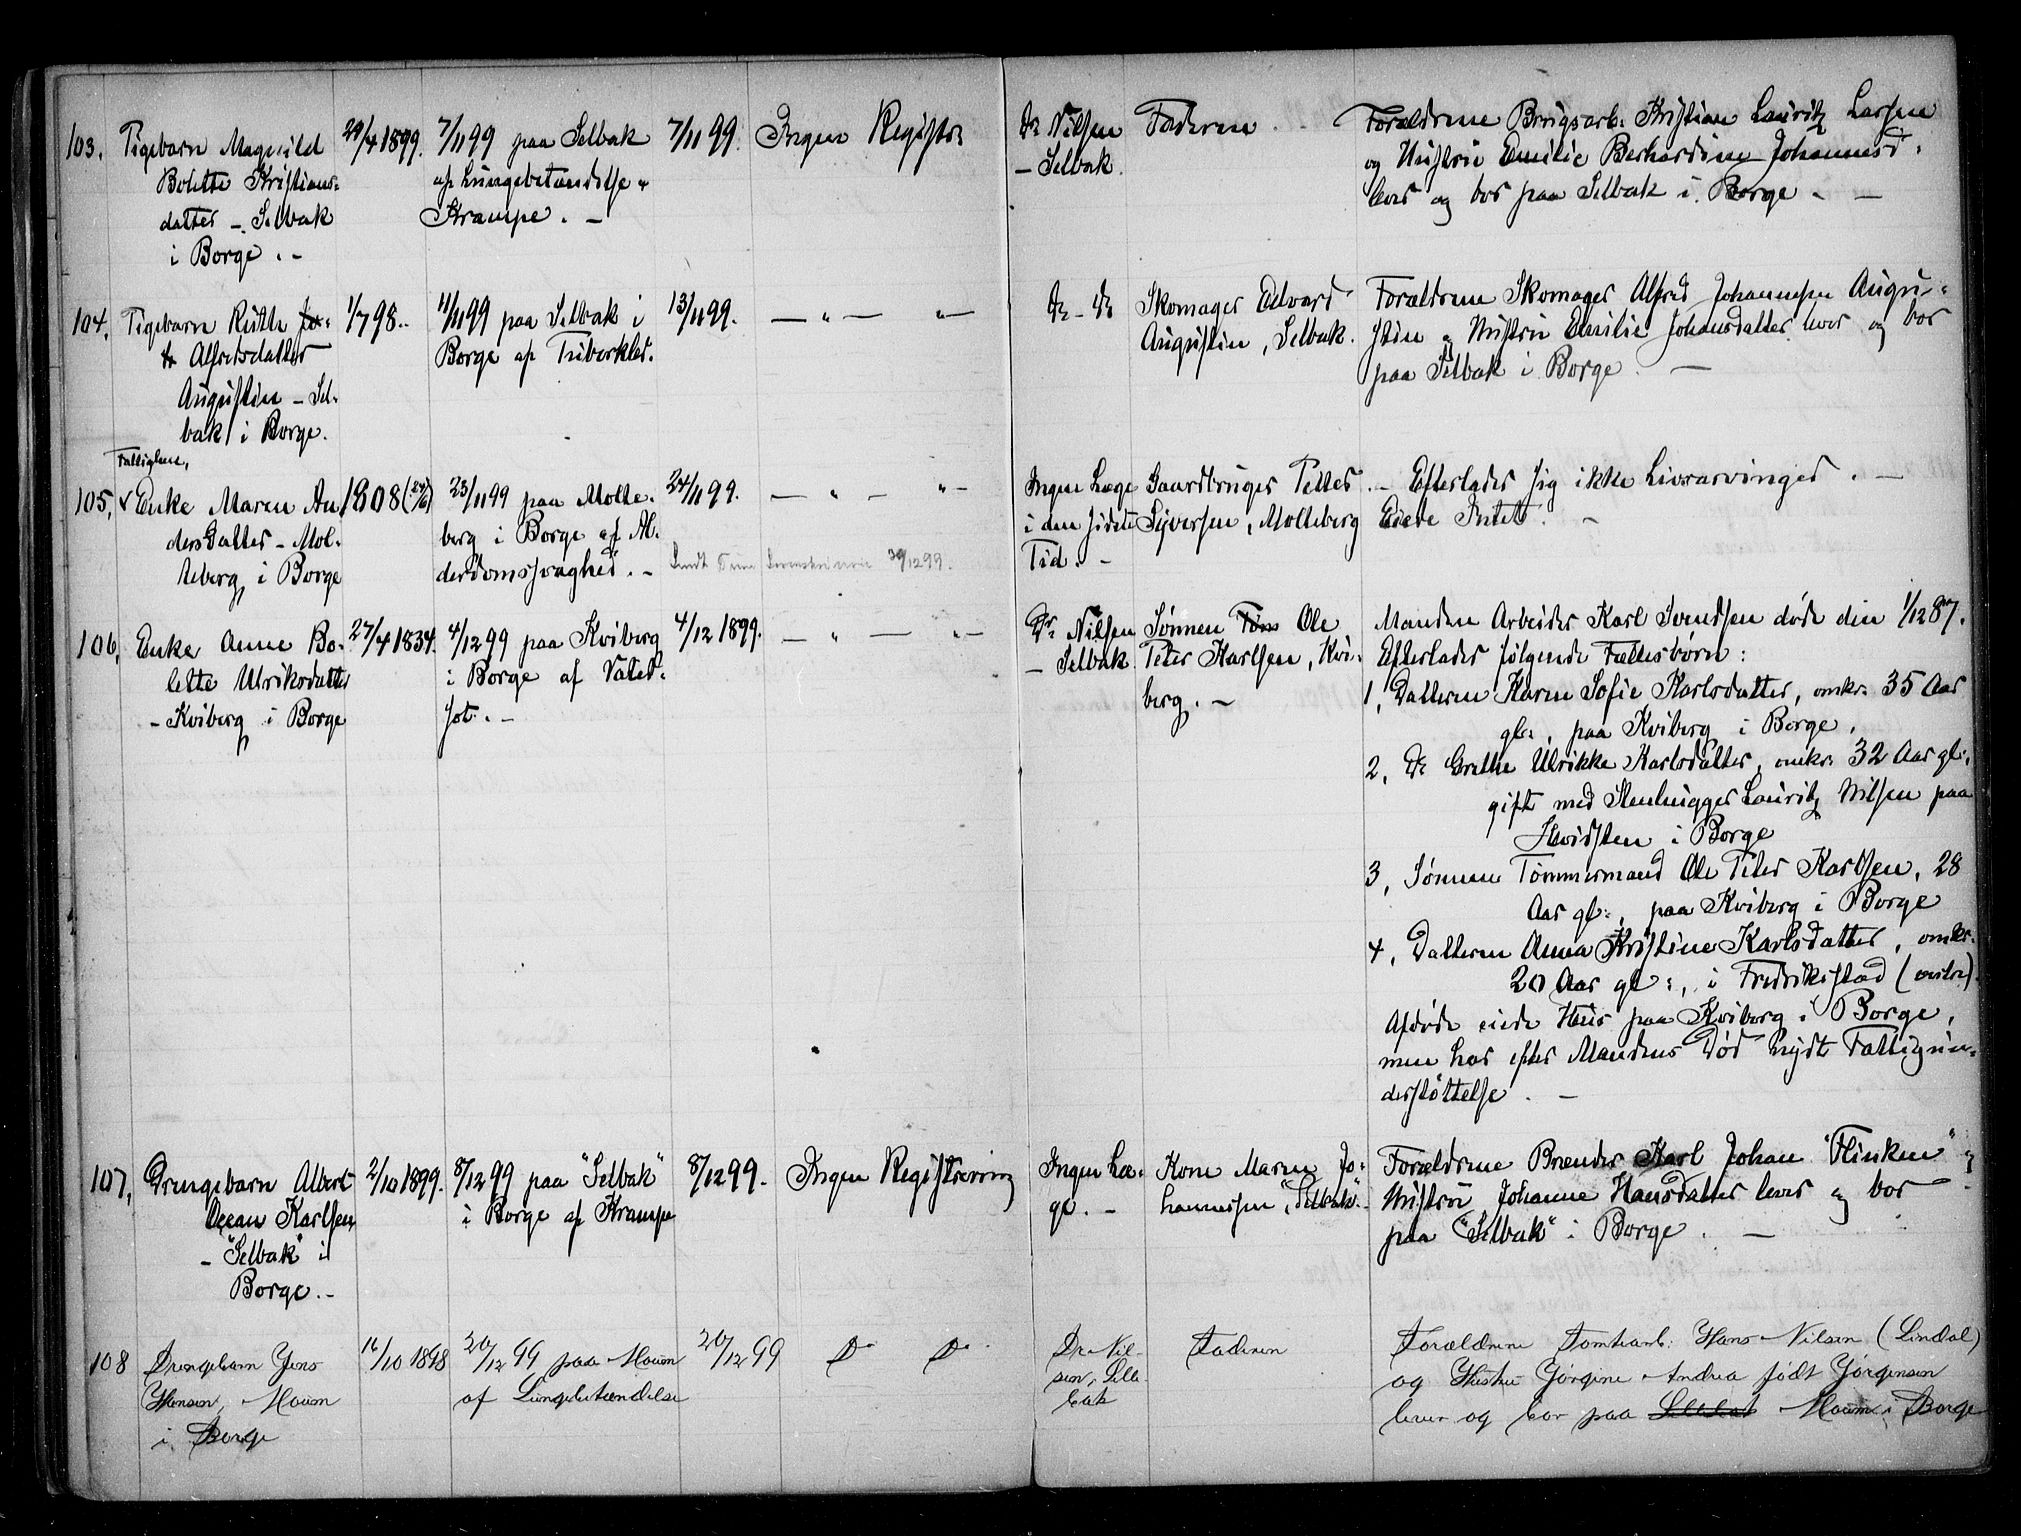 103.
Pigebarn Magnild
Bolette Kristians-
datter - Selbak
i Borge. -
29/4 1899.
7/11 99 paa Selbak
af Lungebetændelse &
Krampe. -
7/11 99.
Ingen Registr:
Dr Nilsen
- Selbak.
Faderen
Forældrene Brugsarb. Kristian Lauritz Larsen
og Hustru Emilie Berhardine Johannesd.
lever og bor paa Selbak i Borge -
104.
Pigebarn Ruth
Alfredsdatter
Augustin - Sel-
bak i Borge.
1/7 98.
11/11 99 paa Selbak i
Borge af Tuberkler.
13/11 99.
— " — " —
Dr - Do
Skomager Edvard
Augustin, Selbak.
Forældrene Skomager Alfred Johannesen Augu-
stin & Hustru Emilie Johansdatter lever og bor
paa Selbak i Borge. —
Fattiglem,
105,
Enke Maren An
dersdatter - Mol-
teberg i Borge
1808 (24/6)
23/11 99 paa Molte-
berg i Borge af Al-
derdomssvaghed. -
24/11 99.
— " — " —
Sendt Sorenskriveren 30/12 99.
Ingen Læge
i den sidste
Tid. -
Gaardbruger Petter
Syversen, Molteberg
- Efterlader sig ikke Livsarvinger. -
Eiede Intet. -
106,
Enke Anne Bo-
lette Ulriksdatter
- Kviberg i Borge
27/4 1834.
4/12 99 paa Kviberg
i Borge af Vater-
sot. -
4/12 1899.
— " — " —
Dr Nilsen
- Selbak
Sønnen Tøm Ole
Peter Karlsen, Kvi-
berg. -
Manden Arbeider Karl Svendsen døde den 1/12 87.
Efterlader følgende Fællesbørn:
1, Datteren Karen Sofie Karlsdatter, omkr. 35 Aar
gl:, paa Kviberg i Borge.
2, Do Grethe Ulrikke Karlsdatter, omkr. 32 Aar gl:,
gift med Stenhugger Lauritz Nilsen paa
Hvidsten i Borge
3, Sønnen Tømmermand Ole Peter Karlsen, 28
Aar gl:, paa Kviberg i Borge
4, Datteren Anna Kristine Karlsdatter, omkr.
20 Aar gl:, i Fredrikstad
Afdøde eiede Hus paa Kviberg i Borge,
men har efter Mandens Død nydt Fattigun-
derstøttelse. -
107,
Drengebarn Albert
Oscar Karlsen
- "Selbak" i
Borge. -
2/10 1899.
8/12 99 paa "Selbak"
i Borge af Krampe
8/12 99.
Ingen Registrering
Ingen Læ-
ge. -
Kone Maren Jo-
hannessen, "Selbak". -
Forældrene Brænder Karl Johan "Flinken" &
Hustru Johanne Hansdatter lever og bor
paa "Selbak" i Borge. —
108
Drengebarn Jens
Hansen, Moum
i Borge
16/10 1898
20/12 99 paa Moum
af Lungebetændelse
20/12 99
Do Do
Dr Nil-
sen, Sell-
bak
Faderen
Forældrene Tomtearb. Hans Nilsen (Lindal)
og Hustru Jørgine Andrea født Jørgensen
lever og bor paa Sellebak Moum i Borge